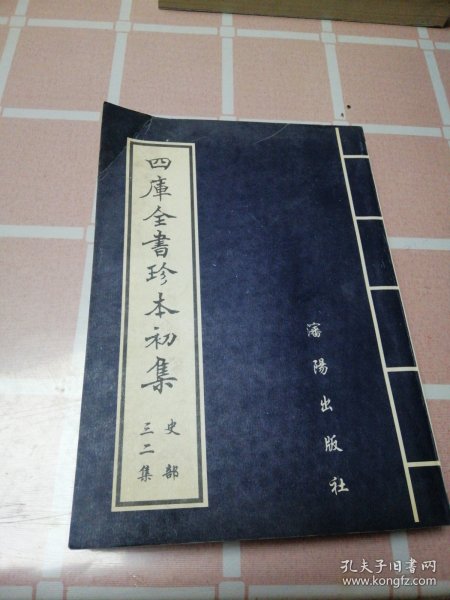 四庫全書珍本初集
史部
三二集
瀋陽出版社
孔夫子旧书网
www.kongfz.com